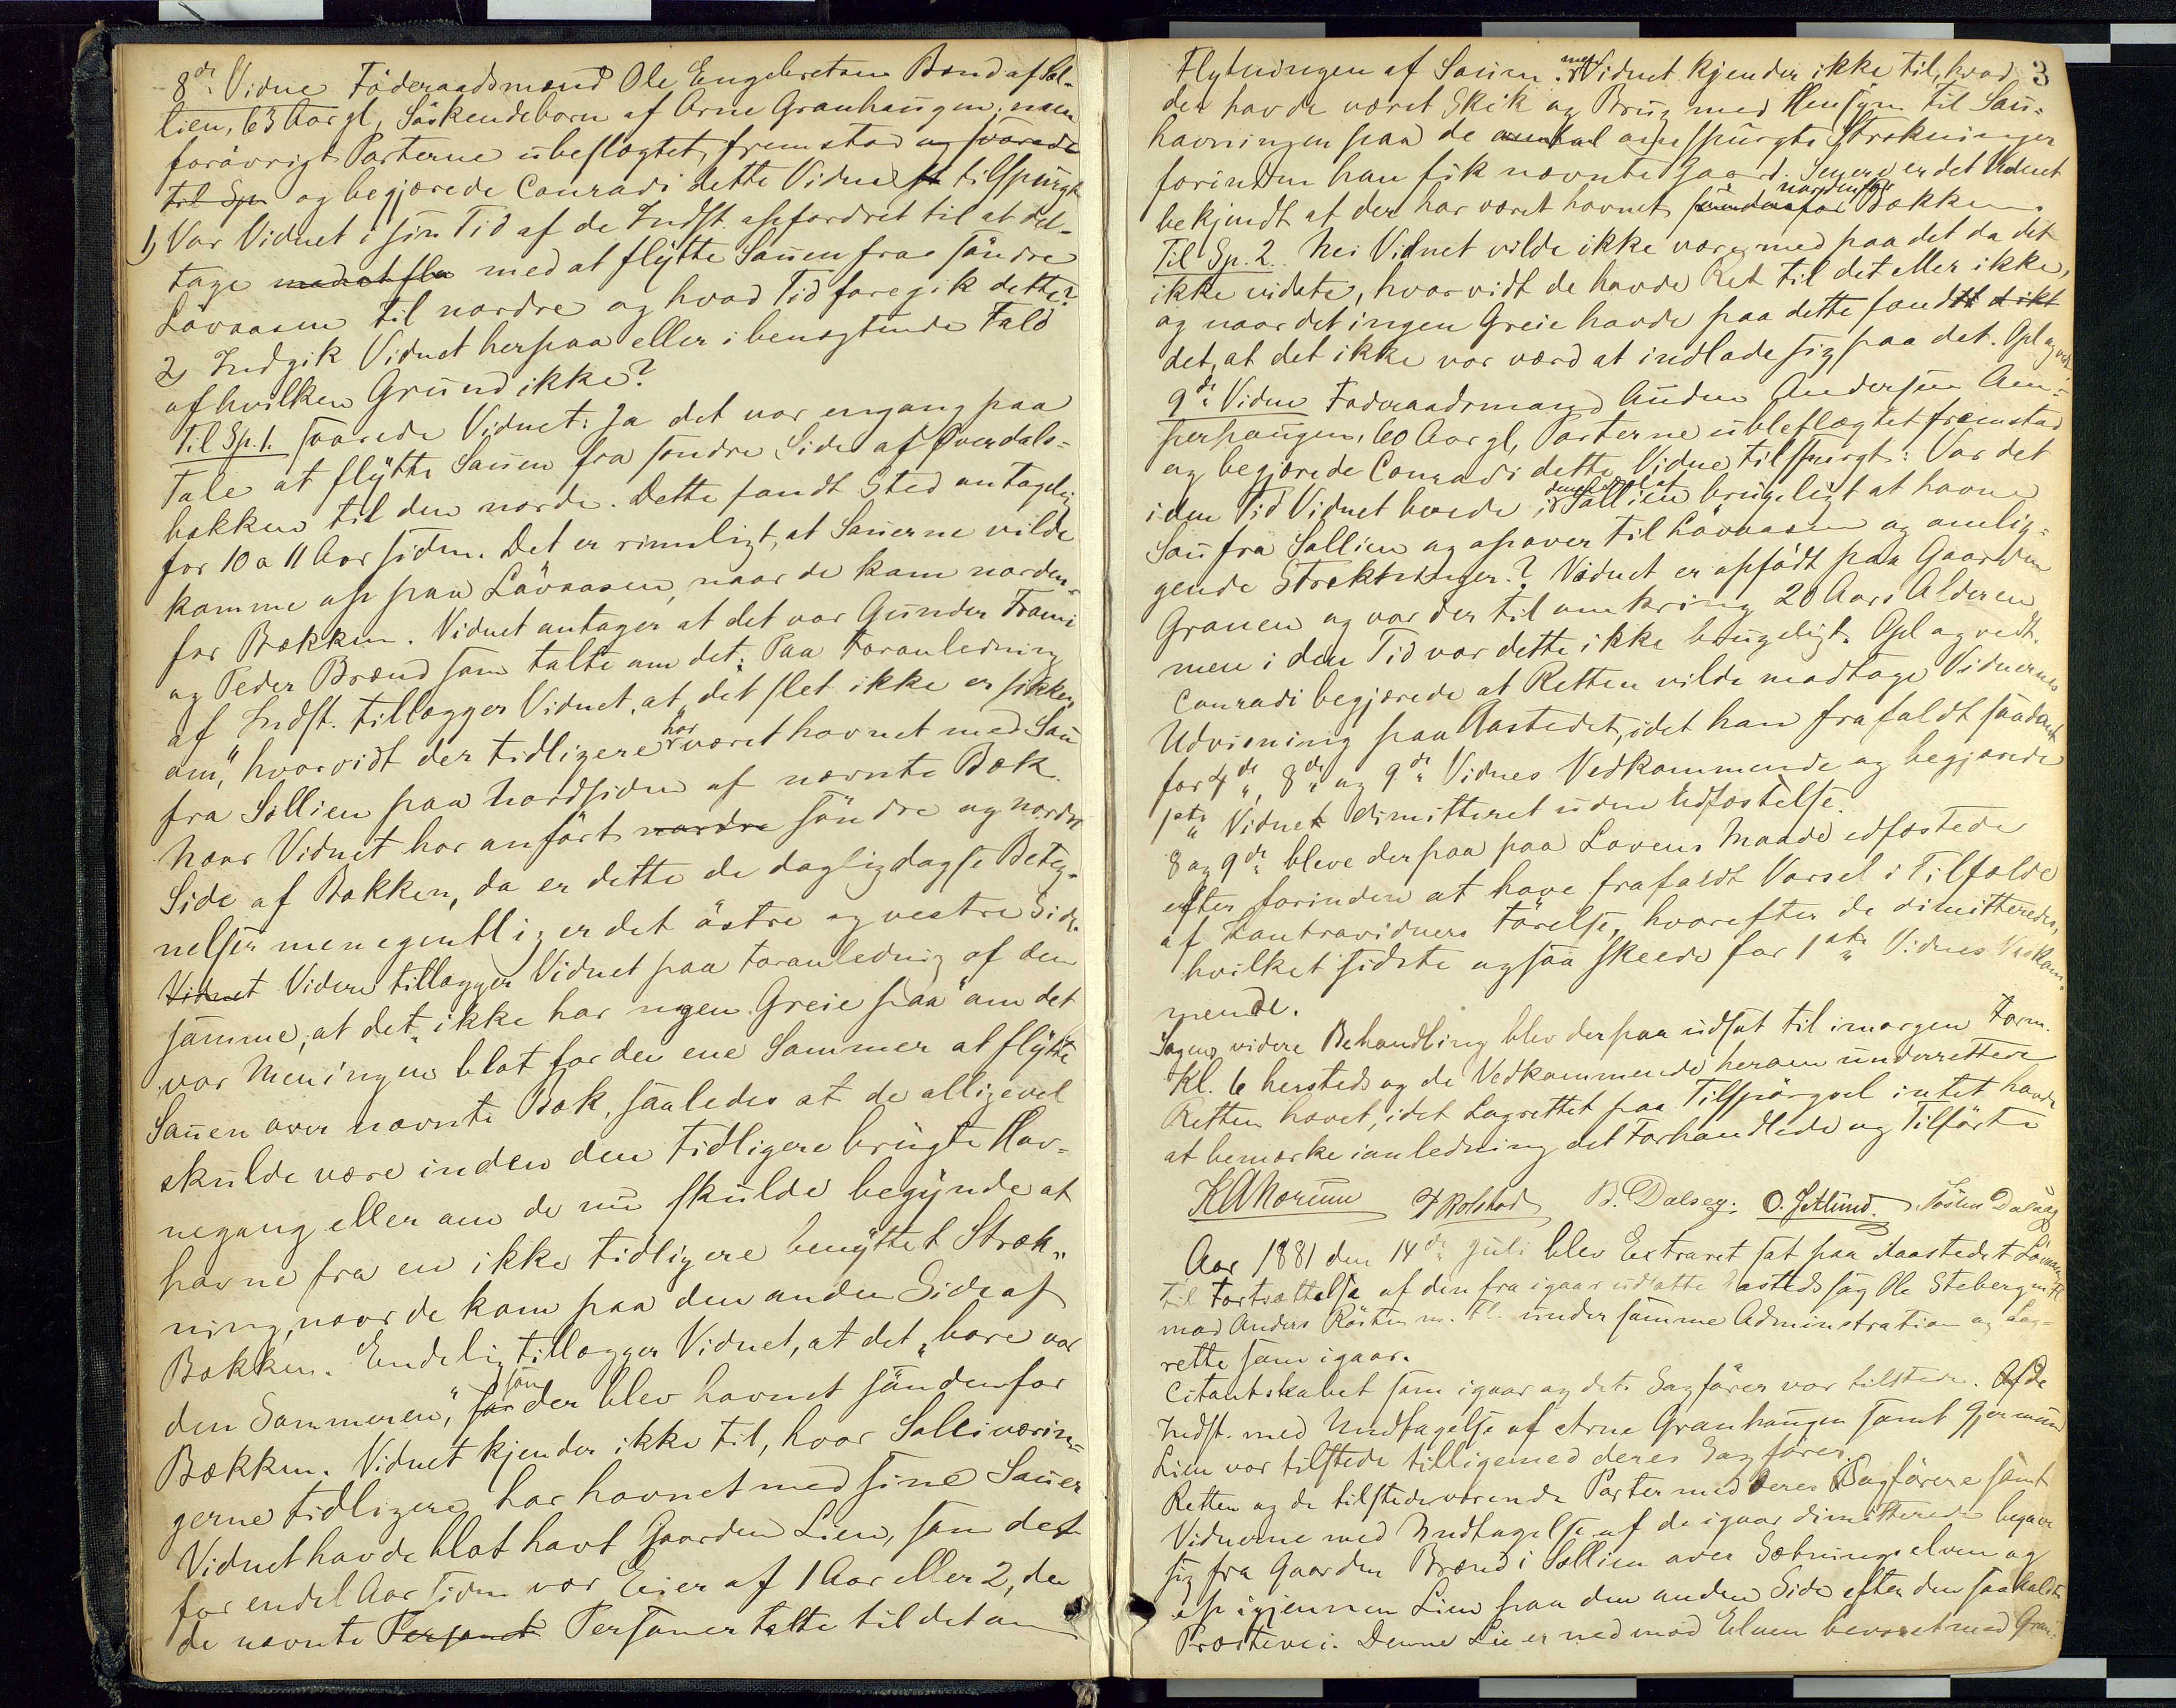 8de Vidne Föderaadsmand Ole Engebretsen Brænd af Sol-
lien, 63 Aar gl, Söskendebarn af Arne Granhaugen, men
forövrigt Parterne ubeslægtet, fremstod og svarede
til Sp. og begjærede Conradi dette Vidne tilspurgt
1, Var Vidnet i sin Tid af de Indst. opfordret til at del-
tage med at fly med at flytte Sauen fra söndre
Lövaasen til nordre og hvad Tid foregik dette?
2, Indgik Vidnet herpaa eller i benægtende Fald
af hvilken Grund ikke?
Til Sp. 1. svarede Vidnet: Ja det var engang paa
Tale at flytte Sauen fra søndre Side af Øverdals-
bækken til den nordre. Dette fandt Sted antagelig
for 10 a 11 Aar siden. Det er rimeligt, at Sauerne vilde
komme op paa Lövaasen, naar de kom norden-
for Bækken. Vidnet antager at det var Gunder Trøni
og Peder Brænd som talte om det. Paa Foranledning
af Indst. tillægger Vidnet, at det slet ikke er sikker
om," hvorvidt der tidligere har været havnet med Sau
fra Sollien paa Nordsiden af nævnte Bæk.
Naar Vidnet har anfört nordre söndre og nordre
Side af Bækken, da er dette de dagligdagse Beteg-
nelser men egentlig er det östre og vestre Side.
Vidnet Videre tillægger Vidnet paa Foranledning af den
samme, at det "ikke har nogen Greie paa" om det
var Meningen blot for den ene Sommer at flytte
Sauen over nævnte Bæk, saaledes at de alligevel
skulde være inden den tidligere brugte Hav-
negang eller om de nu skulde begynde at
havne fra en ikke tidligere benyttet Stræk-
ning, naar de kom paa den anden Side af
Bækken. Endelig tillægger Vidnet, at det "bare var
den Sommeren," for som der blev havnet söndenfor
Bækken. Vidnet kjender ikke til, hvor Solliværin-
gerne tidligere har havnet med sine Sauer
Vidnet havde blot havt Gaarden Lien, som det
for endel Aar siden var Eier af 1 Aar eller 2, da
de nævnte Personet Personer talte til det om
3
Flytningen af Sauen men Vidnet kjender ikke til, hvad
der havde været Skik og Brug med Hensyn til Sau-
havningen paa de omhal omspurgte Strækninger
forinden han fik nævnte Gaard. Senere er det Vidnet
bekjendt at der har været havnet söndenfor nordenfor Bækken.
Til Sp. 2. Nei Vidnet vilde ikke være med paa det da det
ikke vidste, hvorvidt de havde Ret til det eller ikke,
og naar det ingen Greie havde paa dette fandt d ikt
det, at det ikke var værd at indlade sig paa det. Opl og vedt.
9de Vidne Föderaadsmand Auden Andersen Am-
perhaugen, 60 Aar gl, Parterne ubeslægtet fremstod
og begjærede Conradi dette Vidne tilspurgt: Var det
i den Tid Vidnet boede i Sollien brugeligt at havne
Sau fra Sollien og opover til Lövaasen og omlig-
gende Strækninger? Vidnet er opfödt paa Gaarden
Granen og var der til omkring 20 Aars Alderen
men i den Tid var dette ikke brugeligt. Opl og vedt.
Conradi begjærede at Retten vilde modtage Vidnernes
Udvisning paa Aastedet, idet han frafaldt saadant
for 4de, 8de og 9de Vidnes Vedkommende og begjærede
1ste Vidnet dimitteret uden Edfæstelse.
8 og 9de bleve derpaa paa Lovens Maade edfæstede
efter forinden at have frafaldt Varsel i Tilfælde
af Kontravidners Förelse, hvorefter de dimitteredes,
hvilket sidste ogsaa skeede for 1ste Vidnes Vedkom-
mende.
Sagens videre Behandling blev derpaa udsat til imorgen Form.
Kl. 6 hersteds og de Vedkommende herom underrettede
Retten hævet, idet Lagrettet paa Tilspörgsel intet havde
at bemærke i anledning det Forhandlede og Tilförte
KANorum B. Dalseg. O. Jetlund.
Aar 1881 den 14de Juli blev Extraret sat paa Aastedet Lövaasen
til Fortsættelse af den fra igaar udsatte Aastedssag Ole Steberg m. fl.
mod Anders Rösten m. fl. under samme Administration og Lag-
rette som igaar.
Citantskabet som igaar og dets Sagförer var tilstede. Af de
Indst. med Undtagelse af Arne Granhaugen samt Gjermund
Lien var tilstede tilligemed deres Sagförer.
Retten og de tilstedeværende Parter med deres Sagförere samt
Vidnerne med Undtagelse af de igaar dimitterede begave
sig fra Gaarden Brænd i Sollien over Sætningselven og
op igjennem Lien paa den anden Side efter den saakaldte
Præstevei. Denne Lie er ned mod Elven bevoxet med Gran-